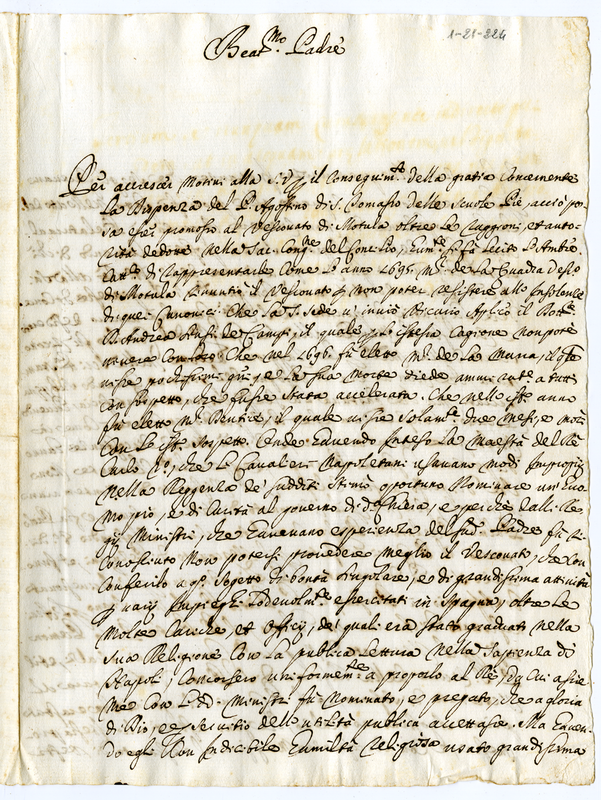 1-21-224
Beat.mo Padre
Per accrescer Motivi alla S.V. p il Conseguim.to della gratia concernente
la Dispenza del P. Agostino di S. Tomasso delle Scuole Pie, acciò pos-
sa esser promosso al Vescovato di Motula oltre le raggioni, et auto-
rità dedotte nella Sac. Cong.ne del Concilio, hum.te si fa lecito l'Amb.re
Catt.co di rappresentarle come l'anno 1695. M.r de la Quadra Vesc.o
di Motula rinuntiò il Vescovato p non poter resistere alle insolenze
di quei Canonici. Che la S. Sede v'inviò Vicario Aplico il
D. Andrea de Campi, il quale p l'istessa cagione non poté
vivere. Che nel 1696. fu eletto M.r de la Marra, il qle
visse pochissimi giorni, e la sua morte diede ammirat.ne a tutti
con sospetto, che fusse stata accelerata. Che nello ist.o anno
fu eletto M.r Dentice, il quale visse solam.te due mesi, e morì
con lo ist.o sospetto. Onde havendo inteso la Maestà del Rè
Carlo 2.o, che li Cavalieri Napoletani usavano modi improprij
nella Reggenza de' sudditi stimò opportuno nominare un huo-
mo pio, e di carità al governo di d.a Chiesa, e perche dalli Re-
gij Ministri, che havevano esperienza del sud.o Padre fu ri-
conosciuto non potersi provedere meglio il Vescovato, che con
conferirlo a q.o sogetto di bontà singolare, e di grandissima attività
p varij impieghi lodevolm.te esercitati in Spagna, oltre le
molte cariche, et officij, de' quali era stato graduato nella
sua Religione con la publica lettura nella Sapienza di
Napoli, concorsero uniformem.te a proporlo al Rè, da cui assie-
me con li d.i Ministri fu nominato, e pregato, che a gloria
di Dio, e servitio dell'utilità publica accettasse. Ma haven-
do egli con indicibile humiltà religiosa usato grandissima